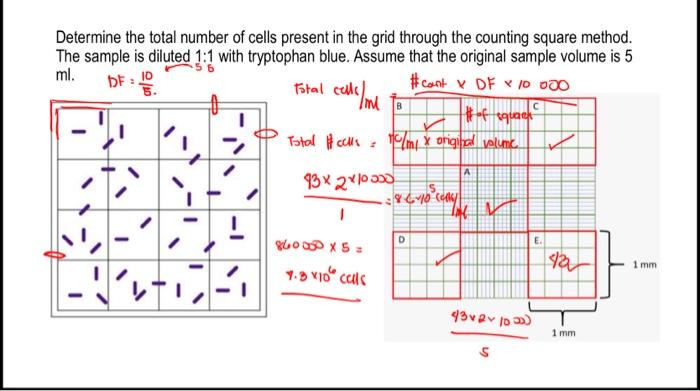 Determine the total number of cells present in the grid through the counting square method.
The sample is diluted 1:1 with tryptophan blue. Assume that the original sample volume is 5
ml.
5 5
DF = 10/5.
Total cells/ml = # count x DF x 10 000
# of square
Total # cells = TC/ml x original volume
43 x 2 x 10 000
1
= 8.6 x 10^5 cells/ml
860 000 x 5 =
4.3 x 10^6 cells
B
C
A
D
E.
43
1 mm
1 mm
43 x 2 x 10 000
5